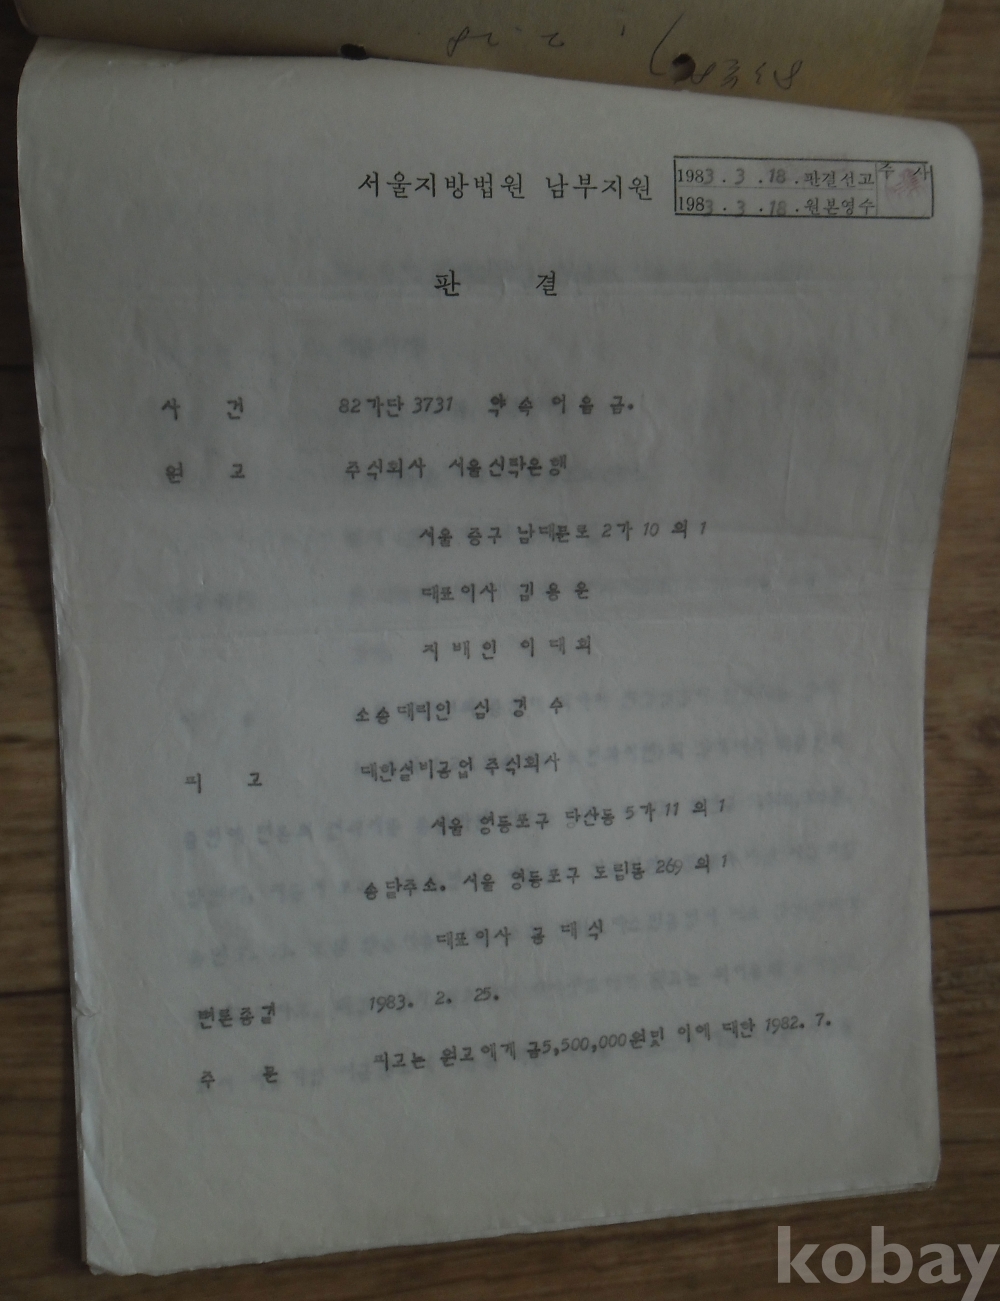 서울지방법원 남부지원
1983.3.18.판결선고
1983.3.18.원본영수
주사
판 결
사 건 82가단 3731 약속어음금.
원 고 주식회사 서울신탁은행
서울 중구 남대문로 2가 10 의 1
대표이사 김용운
지배인 이대희
소송대리인 심경수
피 고 대한설비공업 주식회사
서울 영등포구 당산동 5가 11 의 1
송달주소. 서울 영등포구 도림동 269 의 1
대표이사 공대식
변론종결 1983. 2. 25.
주 문 피고는 원고에게 금5,500,000원및 이에 대한 1982. 7.
kobay